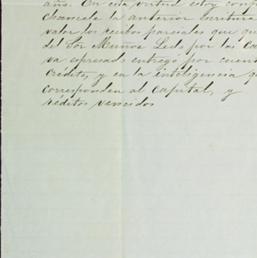 año. En esta virtud estoy conf
chancela la anterior escritura
valor los recibos parciales que qu
del Sor Muñoz Ledo por las Ca
va espresado entregó por cuent
Crédito, y en la inteligencia q
corresponden al Capital, y
réditos vencidos